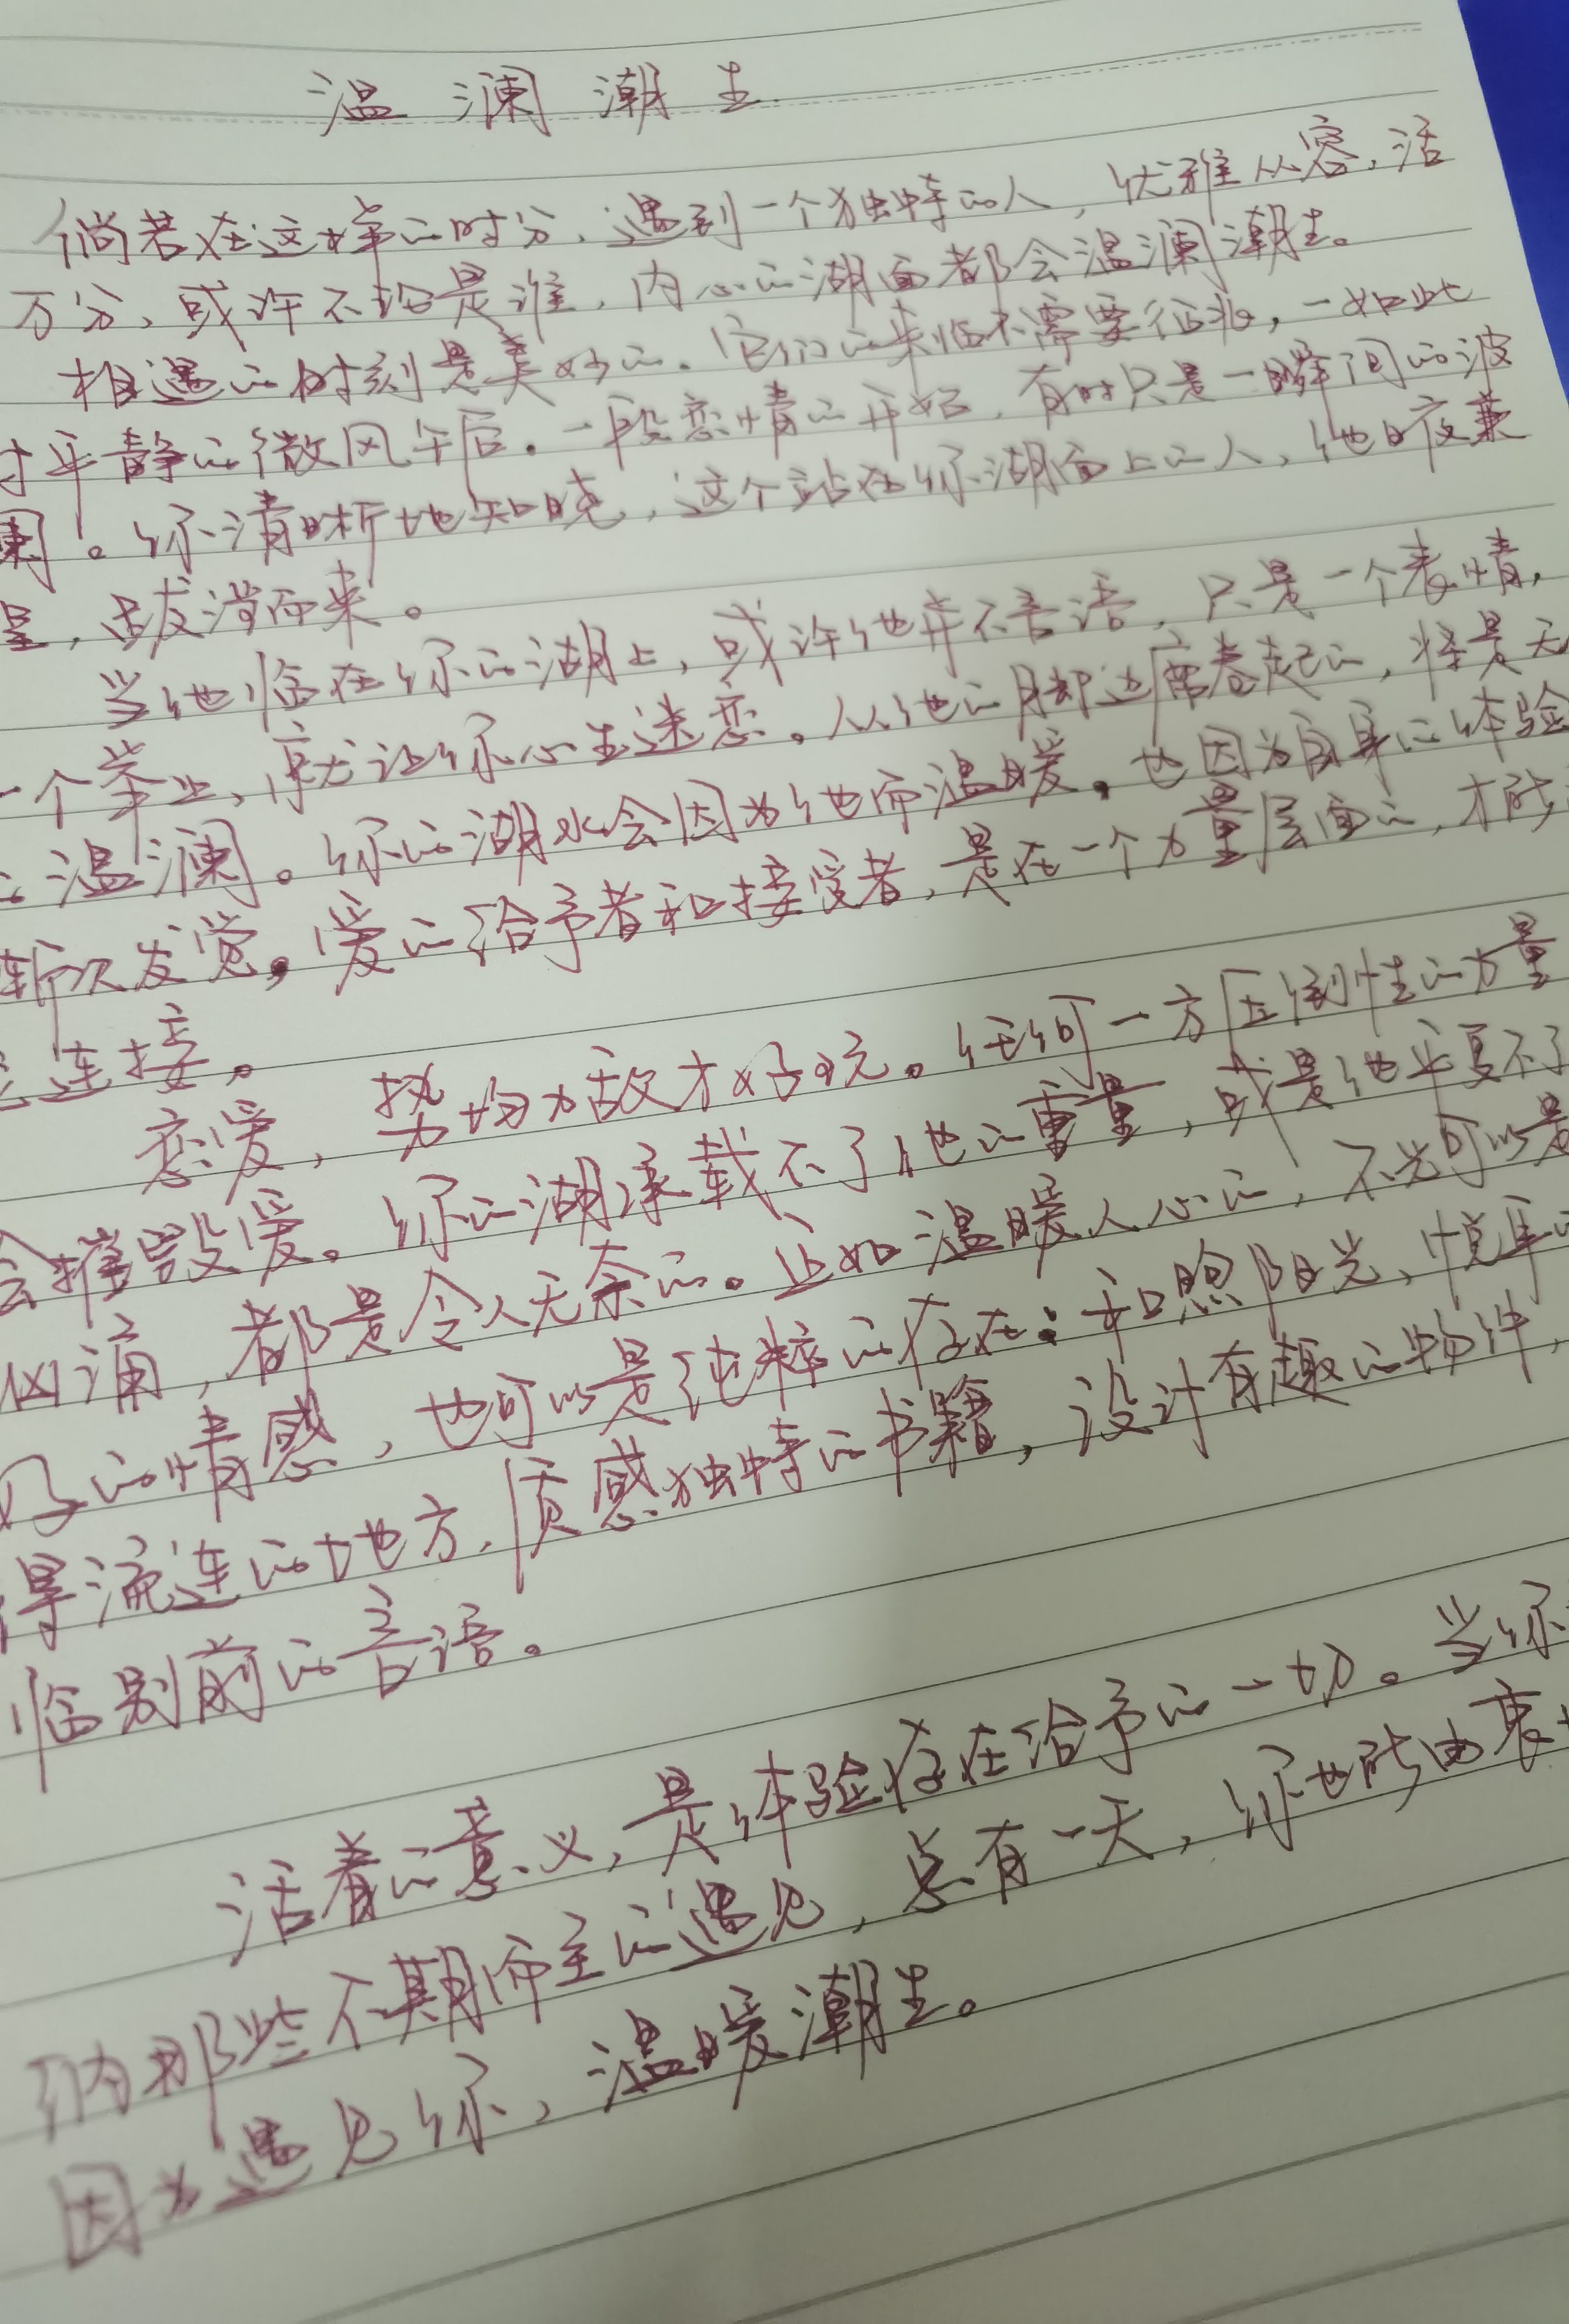 温澜潮生
倘若在这样的时分、遇到一个独特的人，优雅从容，活
万分、或许不论是谁，内心的湖面都会温澜潮生。
相遇的时刻是美妙的。它们的来临不需要征兆，一如此
平静的微风午后。一段恋情的开始，有时只是一瞬间的波
澜。你清晰地知晓，这个站在你湖面上的人，他日夜兼
程，跋涉而来。
当他临在你的湖上，或许他并不言语，只是一个表情，
一个举止，就让你心生迷恋。从他的脚边席卷起的，将是无
温澜。你的湖水会因为他而温暖。也因为自身的体验
渐次发觉。爱的给予者和接受者，是在一个力量层面的，才能
连接。
恋爱，势均力敌才好玩。任何一方压倒性的力量
会摧毁爱。你的湖承载不了他的重量，或是他平复不了
汹涌，都是令人无奈的。正如温暖人心的，不光可以是
好的情感，也可以是纯粹的存在：和煦阳光、悦耳
得流连的地方，质感独特的书籍，设计有趣的物件，
临别前的言语。
活着的意义，是体验存在给予的一切。当你
纳那些不期而至的遇见，总有一天，你也能由衷
因为遇见你，温暖潮生。